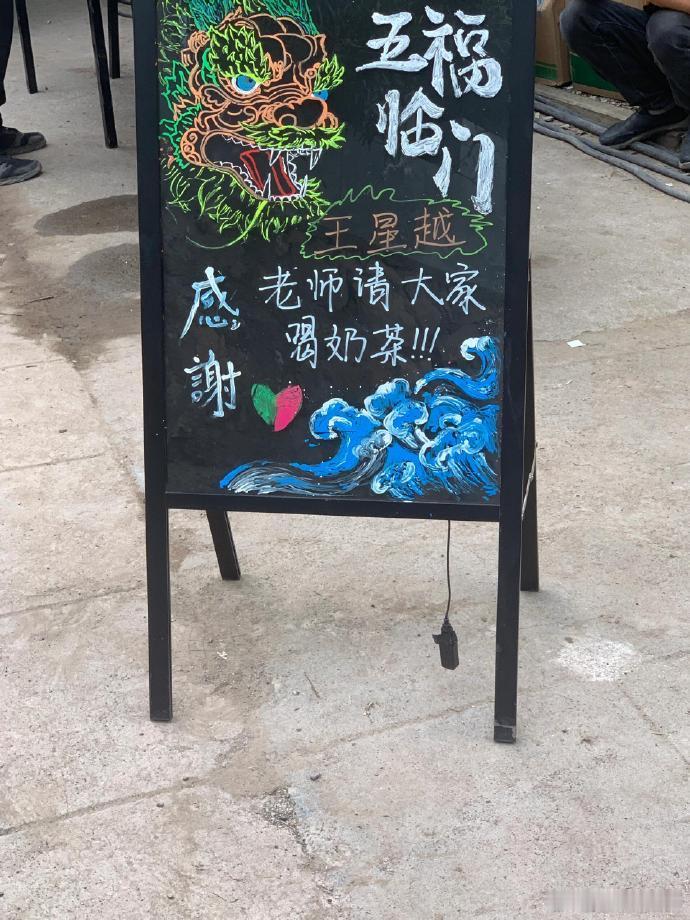 五福
临门
王星越
感谢
老师请大家
喝奶茶!!!